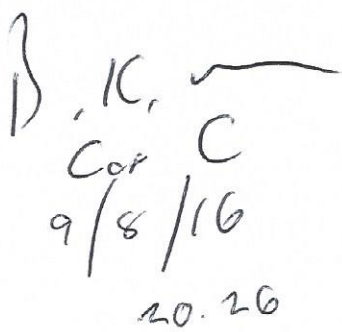 B. K.
Cor C
9/8/16
20.26